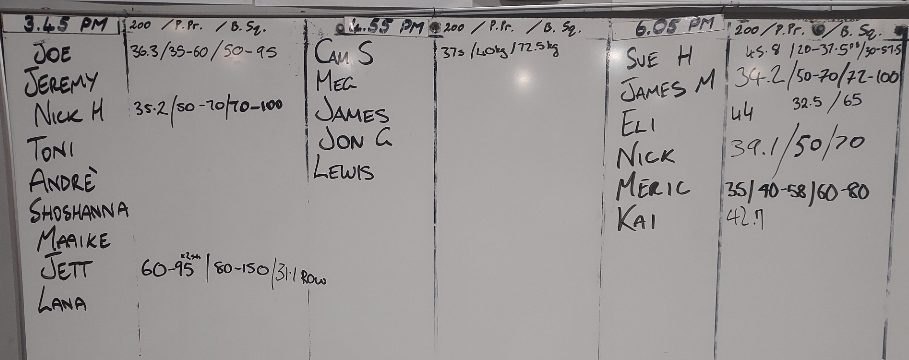 3.45 PM 200 / P.Pr. / B. Sq.
JOE 36.3/35-60/50-95
JEREMY
NICK H 35.2/50-70/70-100
TONI
ANDRÈ
SHOSHANNA
MAAIKE
JETT 60-95 / 80-150/31.1 ROW
LANA
4.55 PM 200 / P.Pr. / B. Sq.
CAM S 37s/40kg/72.5kg
MEG
JAMES
JON G
LEWIS
6.05 PM 200 / P.Pr. / B. Sq.
SUE H 45.8 /20-37.5 /30-57.5
JAMES M 34.2/50-70/72-100
ELI 44 32.5 / 65
NICK 39.1/50/70
MERIC 35/40-58/60-80
KAI 42.7